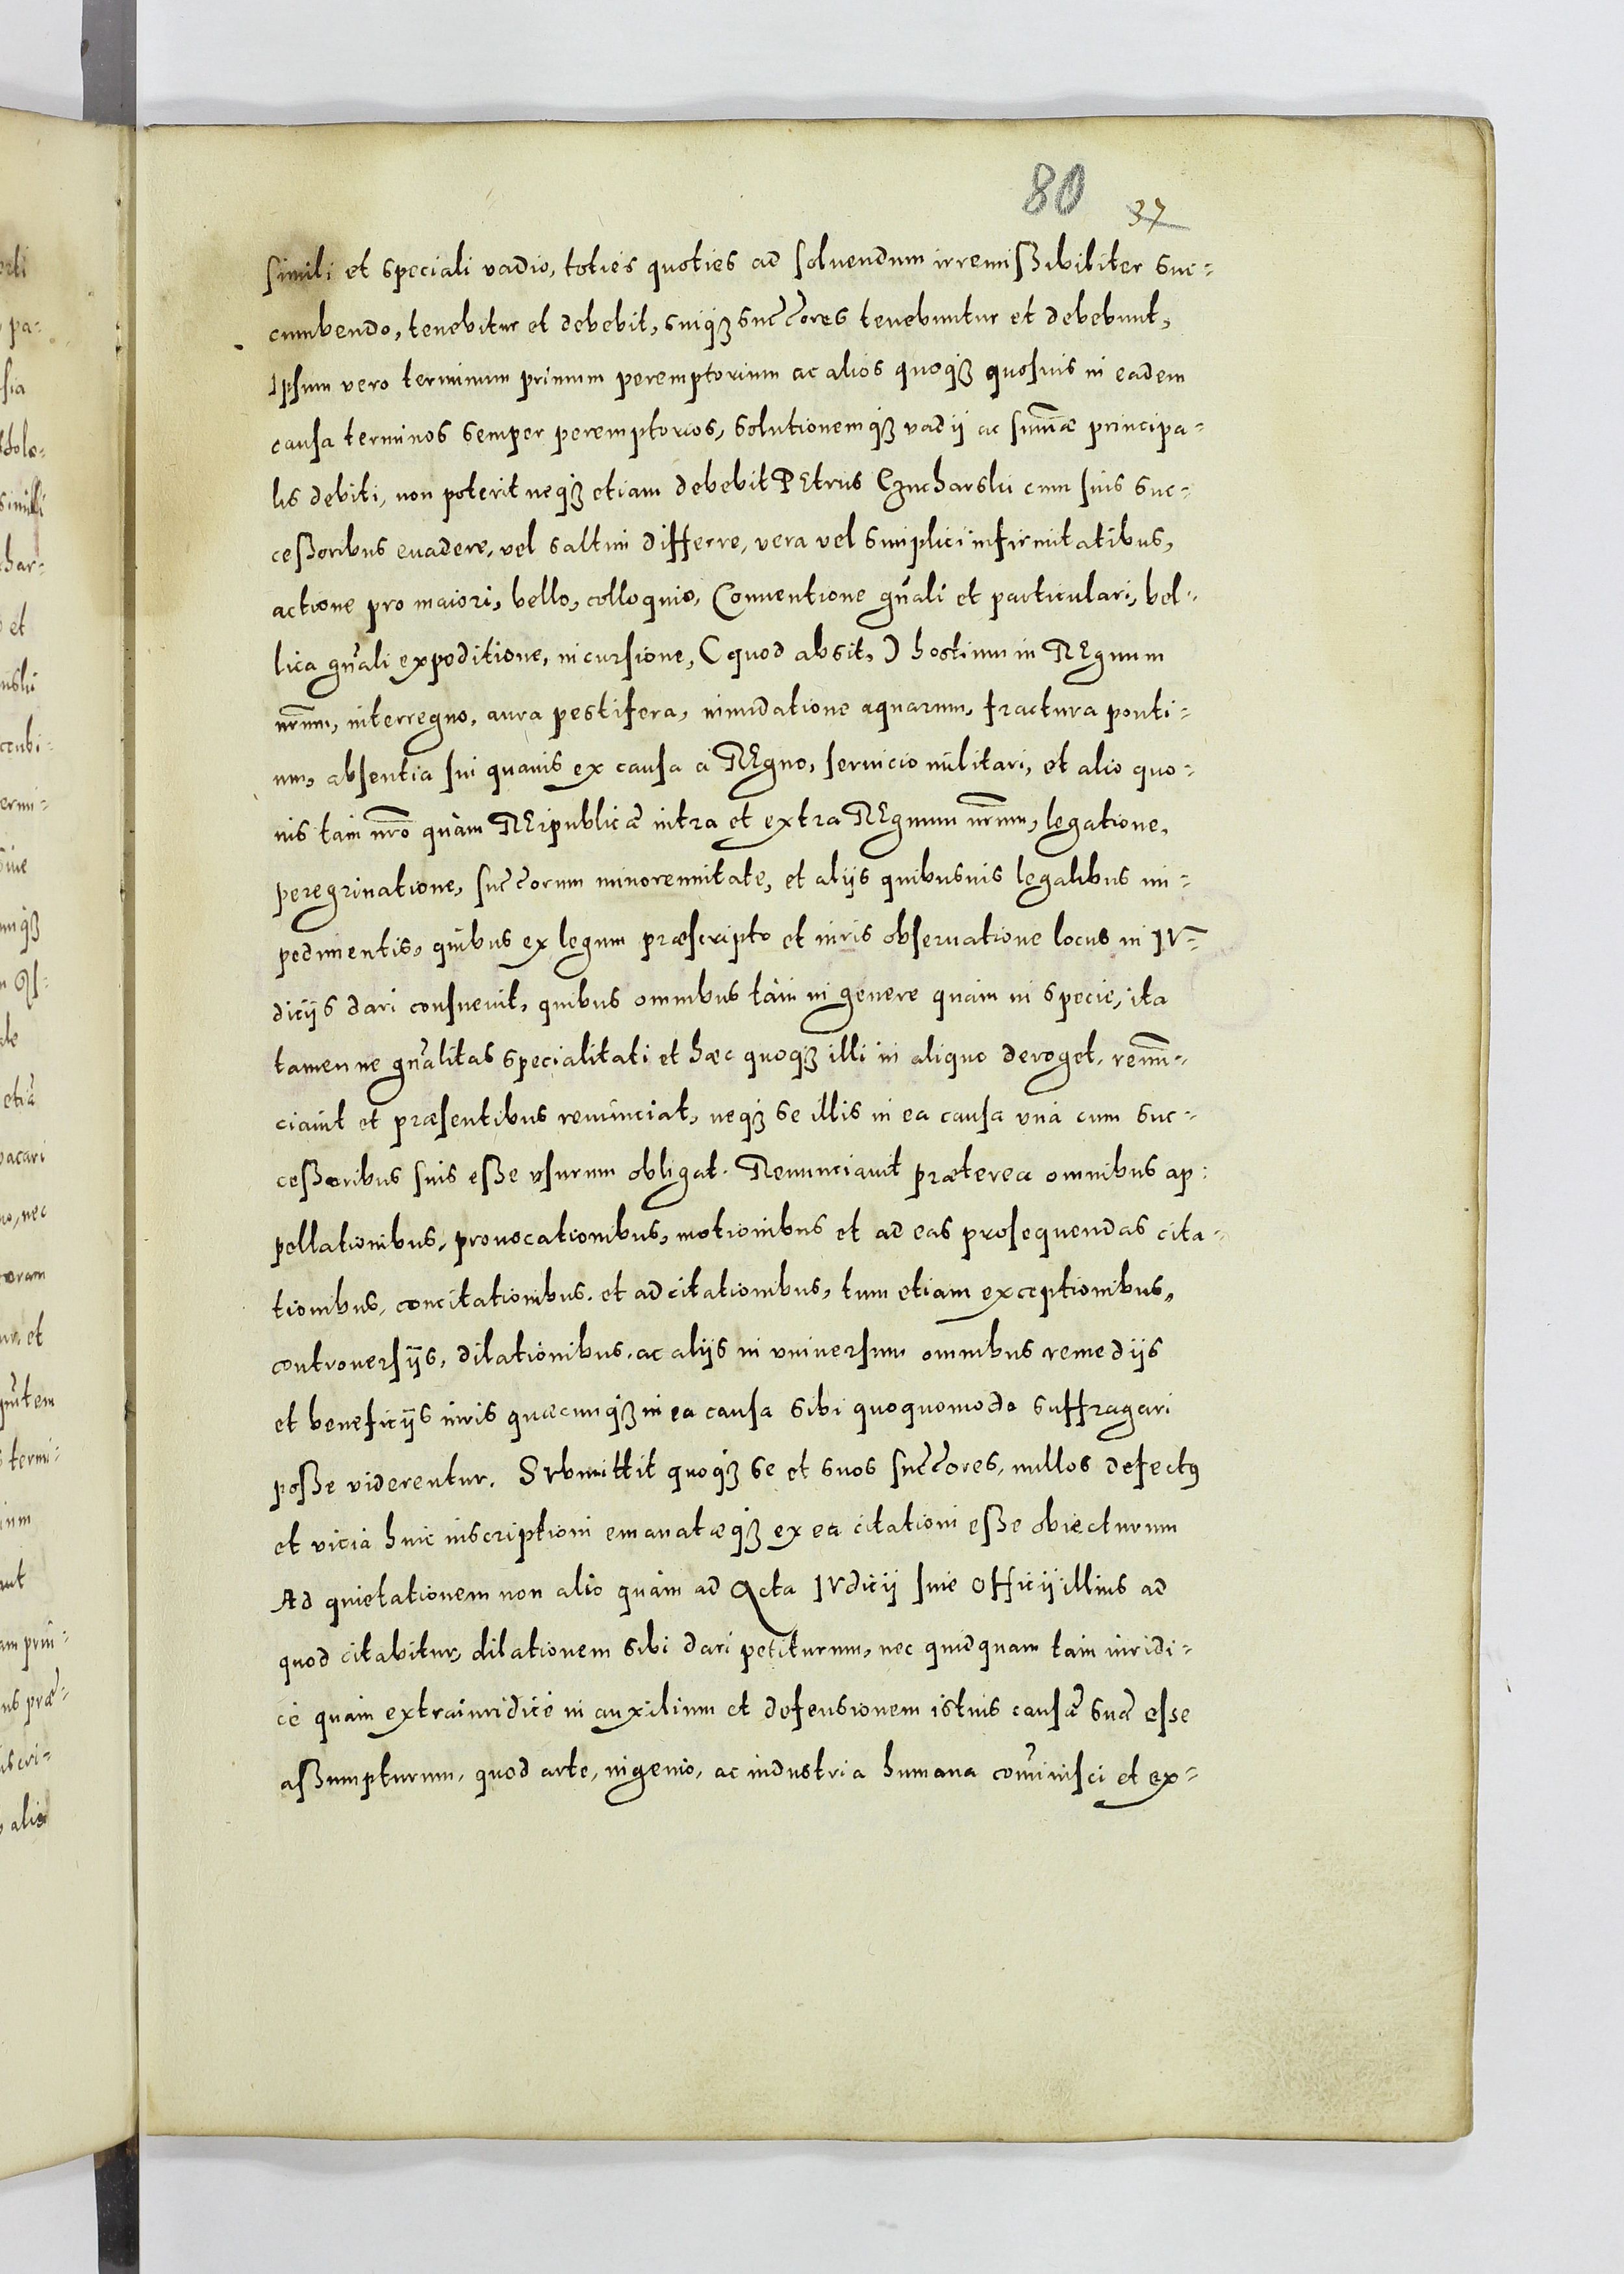 80 37
simili et speciali vadio, toties quoties ad soluendum irremißibiliter suc-
cumbendo, tenebitur et debebit, suiqꝫ succ̃ores tenebuntur et debebunt,
Ipsum vero terminum primum peremptorium ac alios quoqꝫ quosuis in eadem
causa terminos semper peremptorios, solutionemqꝫ vadij ac sum̃æ principa-
lis debiti, non poterit neqꝫ etiam debebit PEtrus Czucharski cum suis suc-
ceßoribus euadere, vel saltim differre, vera vel simplici infirmitatibus,
actione pro maiori, bello, colloquio, Conuentione gñali et particulari, bel-
lica gñali expeditione, incursione, (quod absit,) hostium in REgnum
nr̃um, interregno, aura pestifera, inundatione aquarum, fractura ponti-
um, absentia sui quauis ex causa à REgno, seruicio militari, et alio quo-
uis tam nr̃o quàm REipublicæ intra et extra REgnum nr̃um, legatione,
peregrinatione, succ̃orum minorennitate, et alijs quibusuis legalibus im-
pedimentis, quibus ex legum præscripto et iuris obseruatione locus in IV-
dicijs dari consueuit, quibus omnibus tàm in genere quàm in specie, ita
tamen ne gñalitas specialitati et hæc quoqꝫ illi in aliquo deroget, renũ-
ciauit et præsentibus renunciat, neqꝫ se illis in ea causa vnà cum suc-
ceßoribus suis eße vsurum obligat. Renunciauit præterea omnibus ap:
pellationibus, prouocationibus, motionibus et ad eas prosequendas cita-
tionibus, concitationibus. et adcitationibus, tum etiam exceptionibus,
controuersijs, dilationibus. ac alijs in vniuersum omnibus remedijs
et beneficijs iuris quæcunqꝫ in ea causa sibi quoquomodo suffragari
poße viderentur. SVbmittit quoqꝫ se et suos succ̃ores, nullos defectꝰ
et vicia huic inscriptioni emanatæqꝫ ex ea citationi eße obiecturum
Ad quietationem non alio quàm ad Acta IVdicij siue Officij illius ad
quod citabitur, dilationem sibi dari petiturum, nec quidquam tam iuridi-
cè quàm extraiuridicè in auxilium et defensionem istius causæ suæ esse
aßumpturum, quod arte, ingenio, ac industria humana com̃inisci et ex-